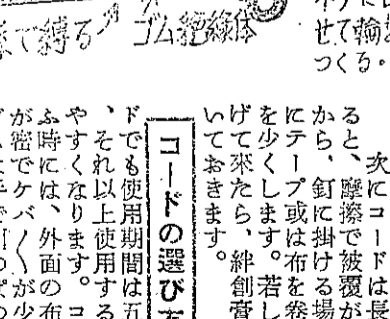 せて輪
つくる。
ゴム絶縁体
で縛る
次にコードは長
ると、摩擦で被覆が
から、釘に掛ける場
にテープ或は布を巻
を少くします。若し
げて来たら、絆創膏
いておきます。
コードの選び方
ドでも使用期間は五
、それ以上使用する
やすくなります。コ
ふ時には、外面の布
が密でケバ〳〵が少